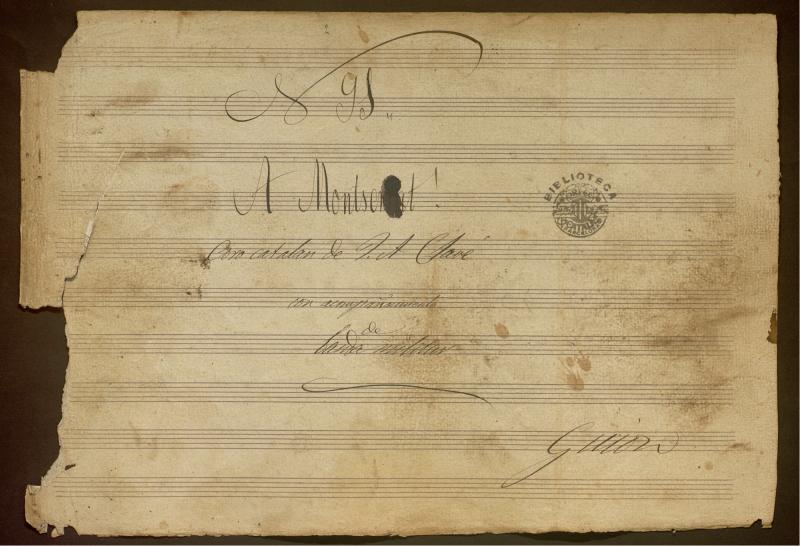 Nº 95„
A Montserrat!
BIBLIOTECA
Coro catalan de J. A. Clavé
con acompañamiento
de
banda militar
Guión